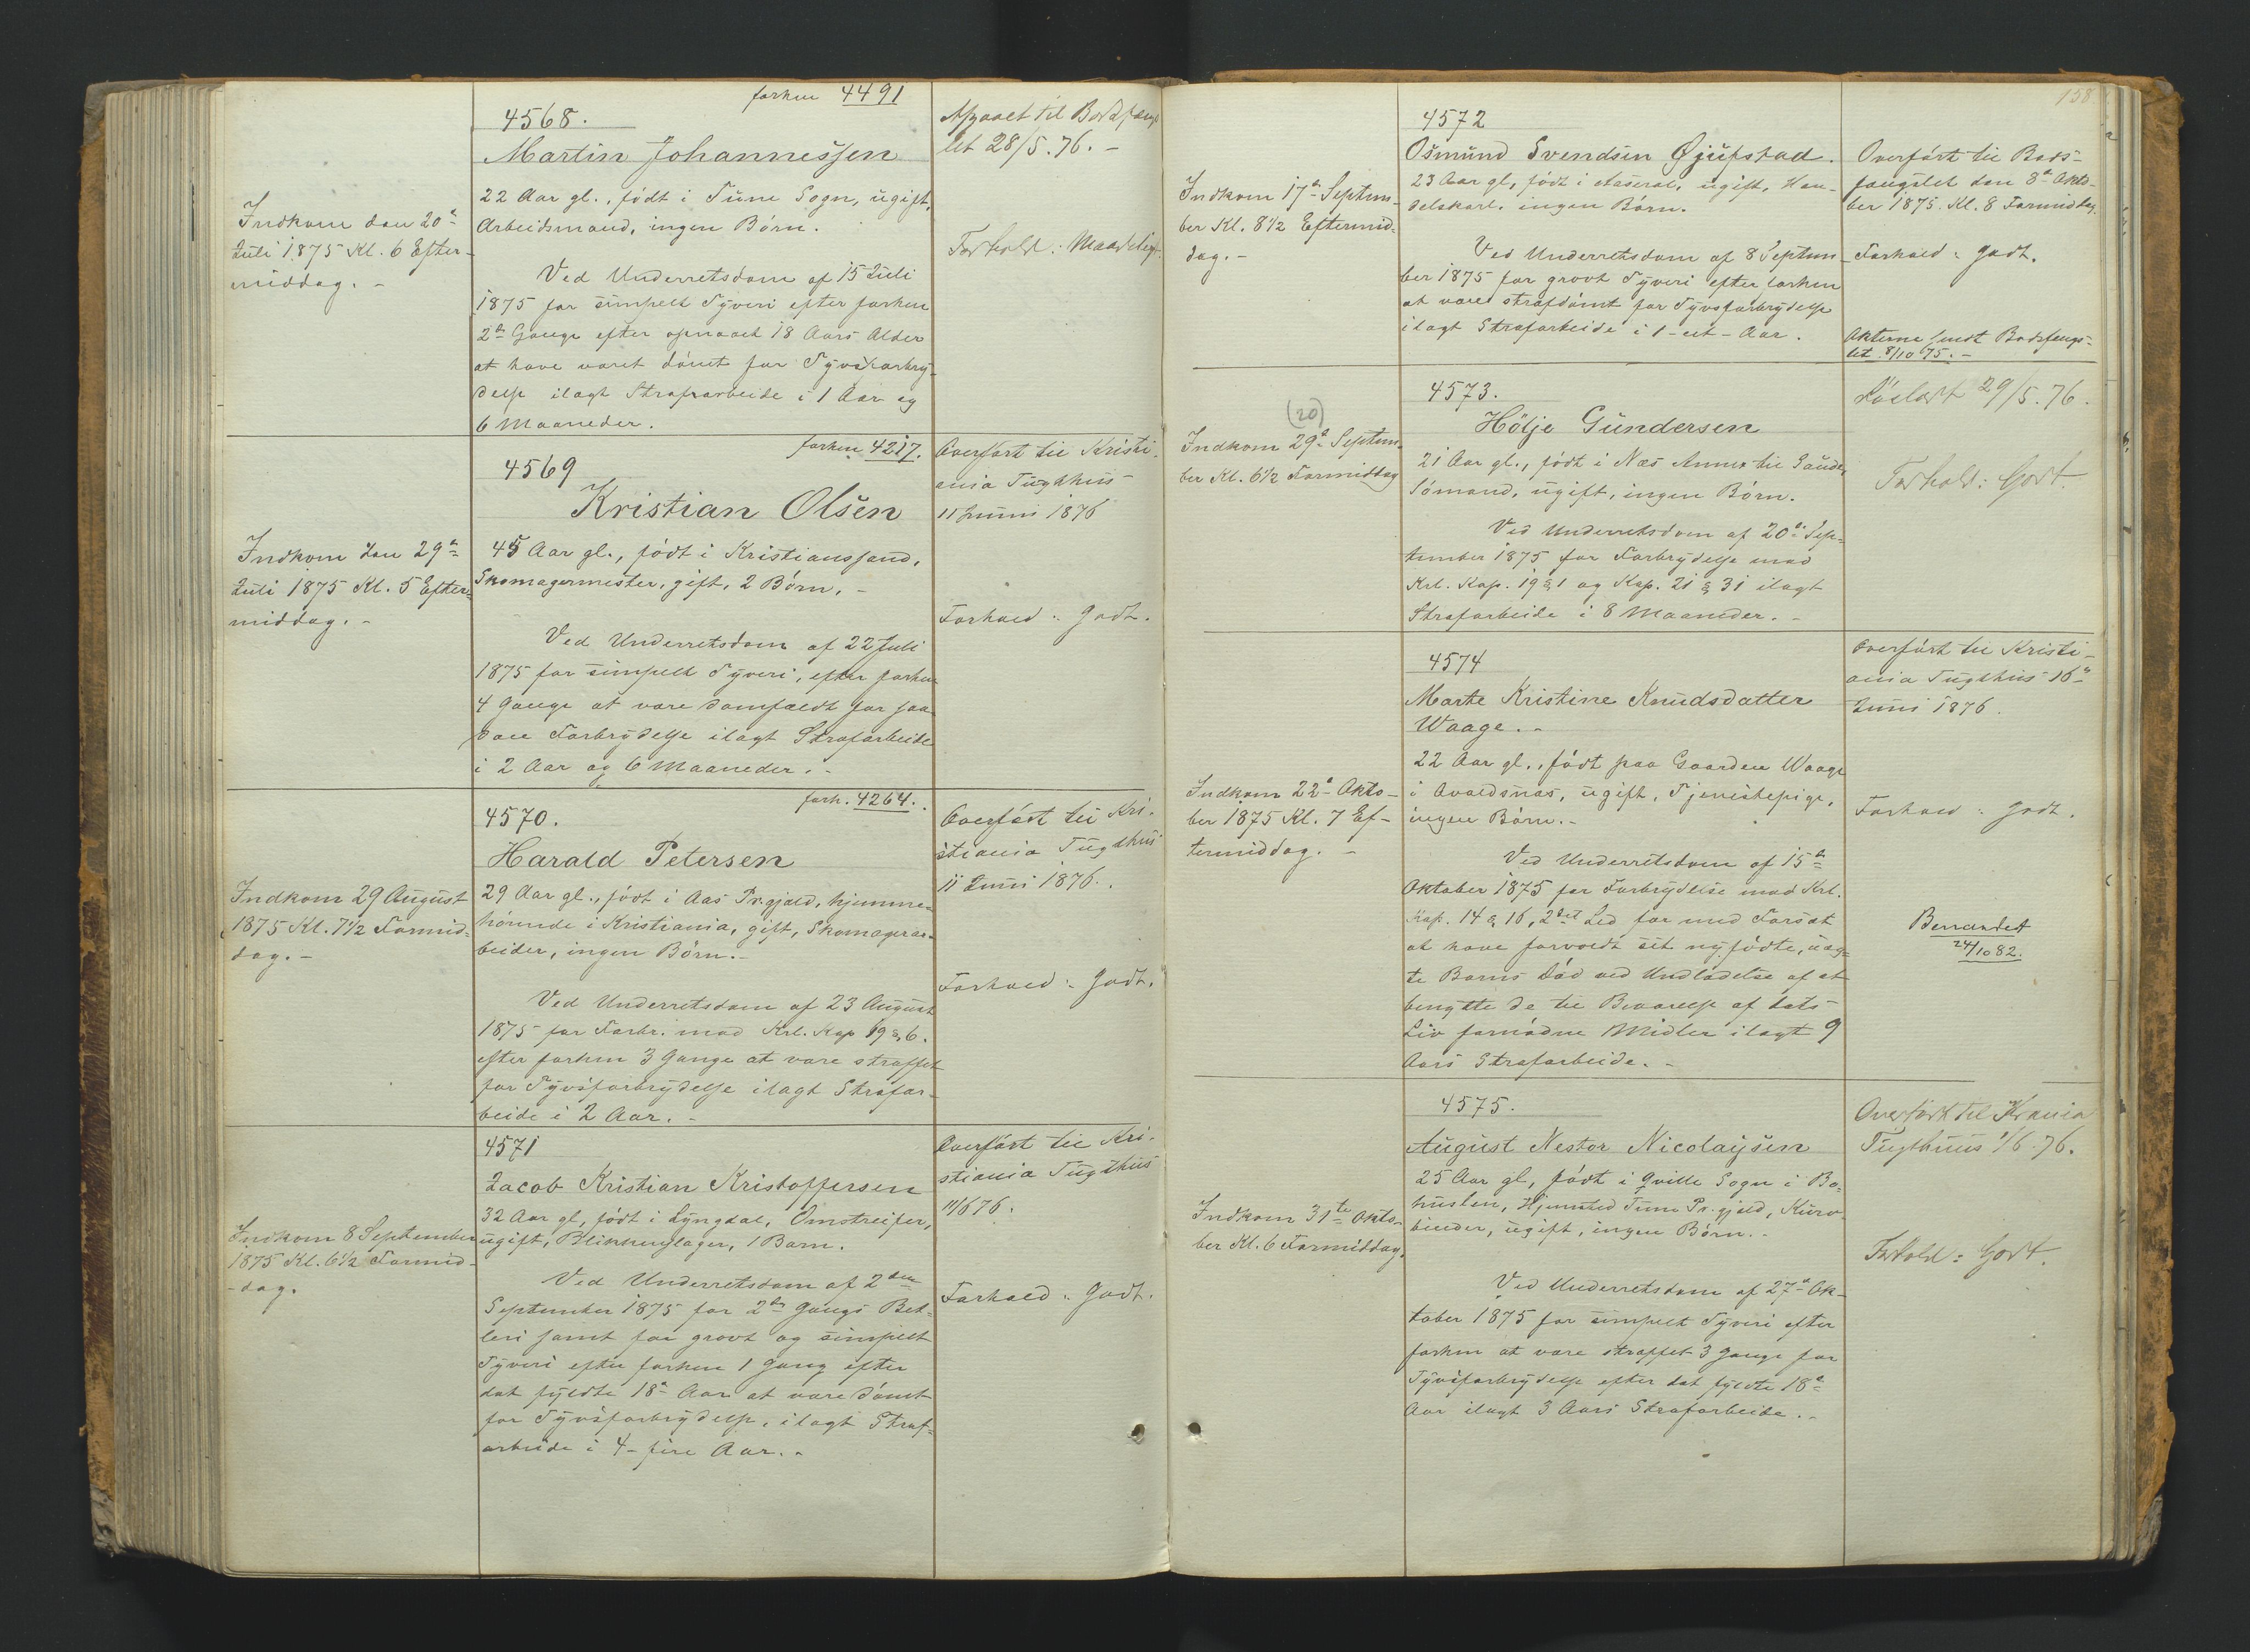 forhen 4491
4568.
Martin Johannessen
22 Aar gl., født i Tune Sogn, ugift,
Arbeidsmand, ingen Børn.
Ved Underretsdom af 15 Juli
1875 for simpelt Tyveri efter forhen
2de Gange efter opnaaet 18 Aars Alder
at have været dømt for Tyvsforbry-
delse ilagt Strafarbeide i 1 Aar og
6 Maaneder.
Indkom den 20de
Juli 1875 Kl. 6 Efter-
middag. -
Afgaaet til Bodsfæng
let 28/5.76. -
Forhold: Maadelig.
forhen 4217.
4569
Kristian Olsen
45 Aar gl., født i Kristianssand,
Skomagermester, gift, 2 Børn. -
Ved Underretsdom af 22 Juli
1875 for simpelt Tyveri, efter forhen
4 Gange at være domfældt for saa
dan Forbrydelse ilagt Strafarbeide
i 2 Aar og 6 Maaneder. -
Indkom den 29de
Juli 1875 Kl. 5 Efter-
middag. -
Overført til Kristi-
ania Tugthus
11 Juni 1876
Forhold: godt.
forh. 4264.
4570.
Harald Petersen
29 Aar gl., født i Aas Pr.gjæld, hjemme-
hørende i Kristiania, gift, Skomagerar-
beider, ingen Børn. -
Ved Underretsdom af 23 August
1875 for Forbr. mod Krl. Kap 19 § 6.
efter forhen 3 Gange at være straffet
for Tyvsforbrydelse ilagt Strafar-
beide i 2 Aar. -
Indkom 29 August
1875 Kl. 7 1/2 Formid-
dag. -
Overført til Kri-
stiania Tugthus
11 Juni 1876.
Forhold: godt.
4571
Jacob Kristian Kristoffersen
32 Aar gl, født i Lyngdal, Omstreifer,
ugift, Blikkenslager, 1 Barn.
Ved Underretsdom af 2den
September 1875 for 2den Gangs Bet-
leri samt for grovt og simpelt
Tyveri efter forhen 1 Gang efter
det fyldte 18de Aar at være dømt
for Tyvsforbrydelse, ilagt Straf-
arbeide i 4 - fire Aar. -
Indkom 8 September
1875 Kl. 6 1/2 Formid-
-dag.
Overført til Kri-
stiania Tugthus
11/6 76.
Forhold: godt.
158
4572
Osmund Svendsen Gjufstad.
23 Aar gl, født i Aaseral, ugift, Han-
delskarl, ingen Børn.
Ved Underretsdom af 8 Septem-
ber 1875 for grovt Tyveri efter forhen
at være strafdømt for Tyvsforbrydelse
ilagt Strafarbeide i 1 - eet - Aar.
Indkom 17de Septem-
ber Kl. 8 1/2 Eftermid-
dag. -
Overført til Bods-
fængslet den 8de Okto-
ber 1875. Kl. 8 Formiddag.
Forhold: godt.
Akterne sendt Bodsfengs-
let 8/10 75. -
4573.
Hölje Gundersen
21 Aar gl., født i Næs Annex til
Sømand, ugift, ingen Børn.
Ved Underretsdom af 20de Sep-
tember 1875 for Forbrydelse mod
Krl. Kap. 19 § 1 og Kap. 21 § 31 ilagt
Strafarbeide i 8 Maaneder. -
(20)
Indkom 29de Septem-
ber Kl. 6 1/2 Formiddag
Løsladt 29/5.76.
Forhold: Godt.
4574
Marte Kristine Knudsdatter
Waage. -
22 Aar gl., født paa Gaarden Waage
i Avaldsnæs, ugift, Tjenestepige,
ingen Børn. -
Ved Underretsdom af 15de
Oktober 1875 for Forbrydelse mod Krl.
Kap. 14 § 16, 2det Led for med Forsæt
at have forvoldt sit nyfødte, uæg-
te Barns Død ved Undladelse af at
benytte de til Bevarelse af dets
Liv fornødne Midler ilagt 9
Aars Strafarbeide. -
Indkom 22de Okto-
ber 1875 Kl. 7 Ef-
termiddag. -
Overført til Kristi-
ania Tugthus 16de
Juni 1876.
Forhold: godt.
Benaadet
24/10 82.
4575.
August Nestor Nicolaysen
25 Aar gl, født i Qville Sogn i Bo-
huslen, Hjemsted Tune Pr.gjæld, Kurv-
binder, ugift, ingen Børn. -
Ved Underretsdom af 27de Ok-
tober 1875 for simpelt Tyveri efter
forhen at være straffet 3 Gange for
Tyvsforbrydelse efter det fyldte 18de
Aar ilagt 3 Aars Strafarbeide. -
Indkom 31te Okto-
ber Kl. 6 Formiddag.
Overført til Krania
Tugthuus 1/6.76.
Forhold: Godt.